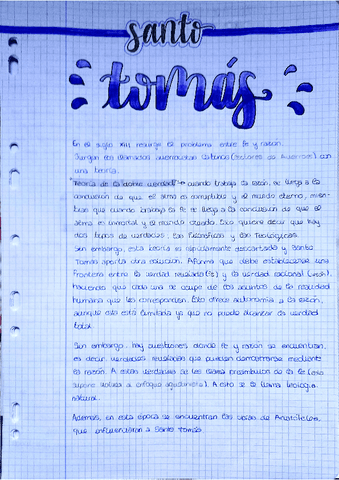 santo
tomás
En el siglo XIII resurge el problema entre fe y razón.
Surgen los llamados averroístas latinos (seguidores de Averroes) con
una teoría.
Teoría de la doble verdad → cuando trabaja la razón, se llega a la
conclusión de que el alma es corruptible y el mundo eterno, mien-
tras que cuando trabaja la fe se llega a la conclusión de que el
alma es inmortal y el mundo creado. Eso quiere decir que hay
dos tipos de verdades, las filosóficas y las teológicas.
Sin embargo, esta teoría es rápidamente descartada y Santo
Tomás aporta otra solución. Afirma que debe establecerse una
frontera entre la verdad revelada (fe) y la verdad racional
haciendo que cada una se ocupe de los asuntos de la realidad
humana que les corresponden. Esto ofrece autonomía a la razón,
aunque esta está limitada ya que no puede alcanzar la verdad
total.
Sin embargo, hay cuestiones donde fe y razón se encuentran,
es decir verdades reveladas que pueden demostrarse mediante
la razón. A estas verdades se les llama preámbulos de la fe (esto
supone volver a enfoque agustiniano). A esto se le llama teología
natural.
Además, en esta época se encuentran las obras de Aristóteles
que influenciaron a Santo Tomás.